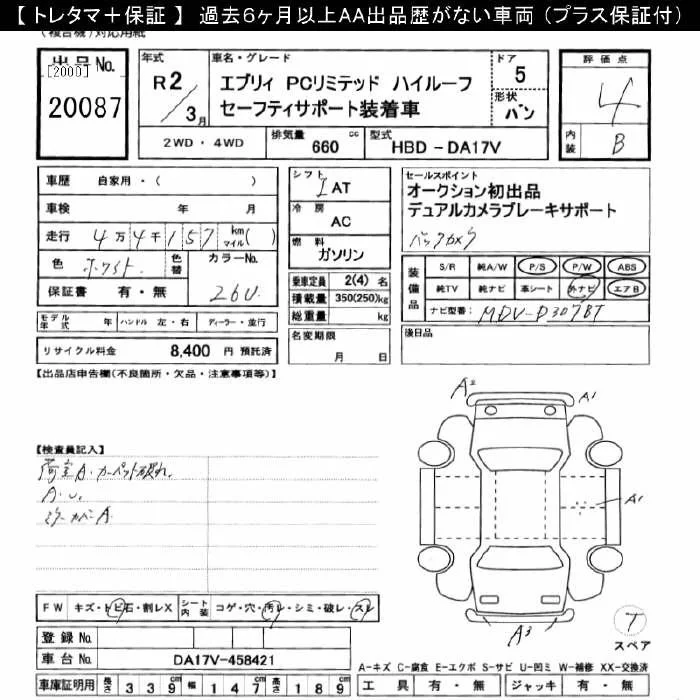 【 トレタマ＋保証 】 過去6ヶ月以上AA出品歴がない車両 (プラス保証付)
(複合機)対応用紙
出品No.
[2000]
20087
年式
R2/3月
車名・グレード
エブリィ PCリミテッド ハイルーフ
セーフティサポート装着車
ドア
5
形状
バン
評価点
4
内装
B
2WD ・ 4WD
排気量 660 cc
型式 HBD - DA17V
車歴 自家用・( )
車検 年 月
走行 4万4千157 km マイル( )
色 ホワイト
色替
カラーNo.
26U
保証書 有・無
シフト
I AT
冷房
AC
燃料
ガソリン
乗車定員 2(4) 名
積載量 350(250)kg
総重量 kg
セールスポイント
オークション初出品
デュアルカメラブレーキサポート
バックカメラ
装備品
S/R 純A/W P/S P/W ABS
純TV 純ナビ 革シート 外ナビ エアB
ナビ型番: MDV-D307BT
モデル年式 年 ハンドル 左・右 ディーラー・並行
リサイクル料金 8,400 円 預託済
名変期限
月 日
後日品
【出品店申告欄(不良箇所・欠品・注意事項等)】
【検査員記入】
荷室A・カーペット破れ
A.U.
ミラーカバーA
A2
A1
A1
A3
T
スペア
FW キズ・トビ石・割レX
シート内装 コゲ・穴・汚レ・シミ・破レ・スレ
登録No.
車台No. DA17V-458421
A-キズ C-腐食 E-エクボ S-サビ U-凹ミ W-補修 XX-交換済
車庫証明用 長さ 339cm 幅 147cm 高さ 189cm
工具 有・無 ジャッキ 有・無